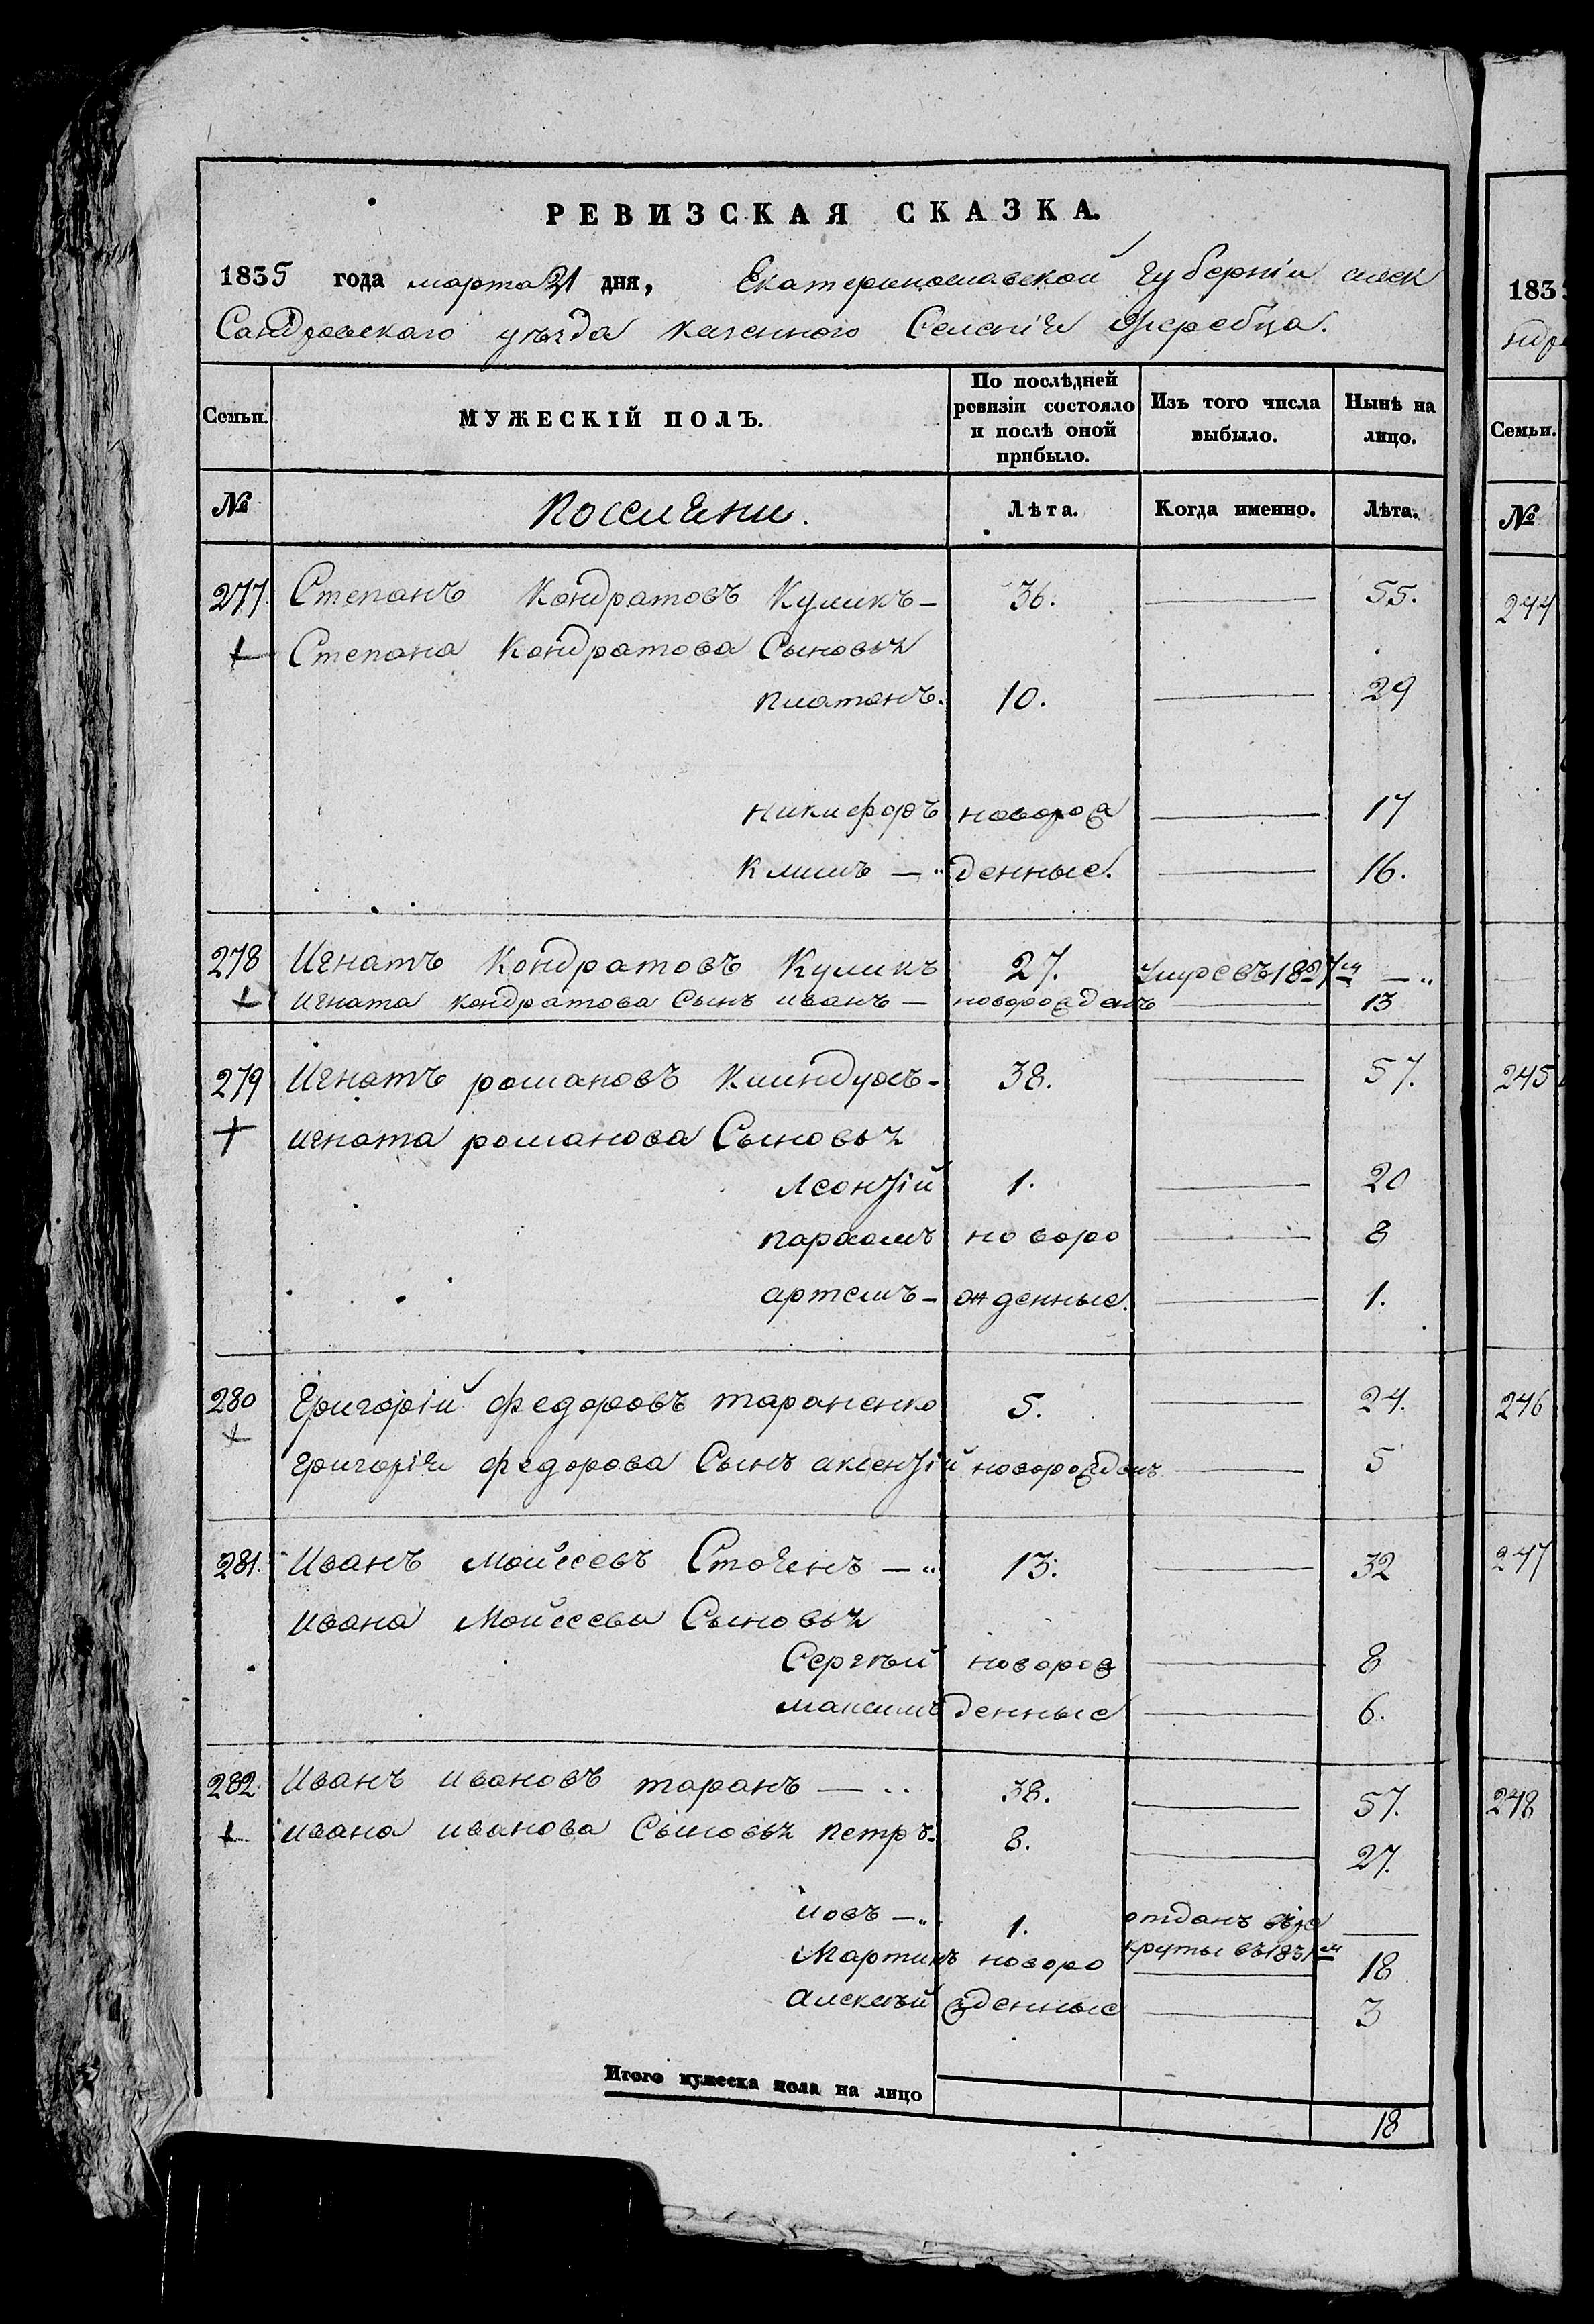 РЕВИЗСКАЯ СКАЗКА.
1835 года марта 21 дня, Екатеринославской губерніи алек
Сандровскаго уѣзда казенного Селенія Жеребца.
Семьи. МУЖЕСКІЙ ПОЛЪ. По послѣдней ревизіи состояло и послѣ оной прибыло. Изъ того числа выбыло. Нынѣ на лицо.
№ Поселяни. Лѣта. Когда именно. Лѣта.
277. Степанъ Кондратовъ Куликъ — 36. — 55.
+ Степана Кондратова Сыновья
платонъ. 10. — 29
никифоръ новорож — 17
климъ — денные. — 16.
278 Игнатъ Кондратовъ Куликъ 27. умре въ 1827м —
+ игната кондратова Сынъ иванъ — новорожденъ — 13
279 Игнатъ романовъ — 38. — 57.
+ игната романова Сыновья
Леонтій 1. — 20
пархомъ новоро — 8
артемъ — жденные. — 1.
280 Григорій федоровъ тараненко 5. — 24.
+ Григорія федорова Сынъ аксентій новорожденъ — 5
281. Иванъ Мойсеевъ — 13. — 32
ивана Мойсеева Сыновья
Сергѣй новорож — 8
максимъ денные — 6.
282. Иванъ ивановъ таранъ — 38. — 57.
+ ивана иванова Сыновья петръ. 8. — 27.
иовъ — 1. отданъ въ ре —
круты въ 1831м
Мартинъ новоро — 18
алексѣй жденные — 3
Итого мужеска пола на лицо 18
183
ндро
Семьи.
№
244
245
246
247
248